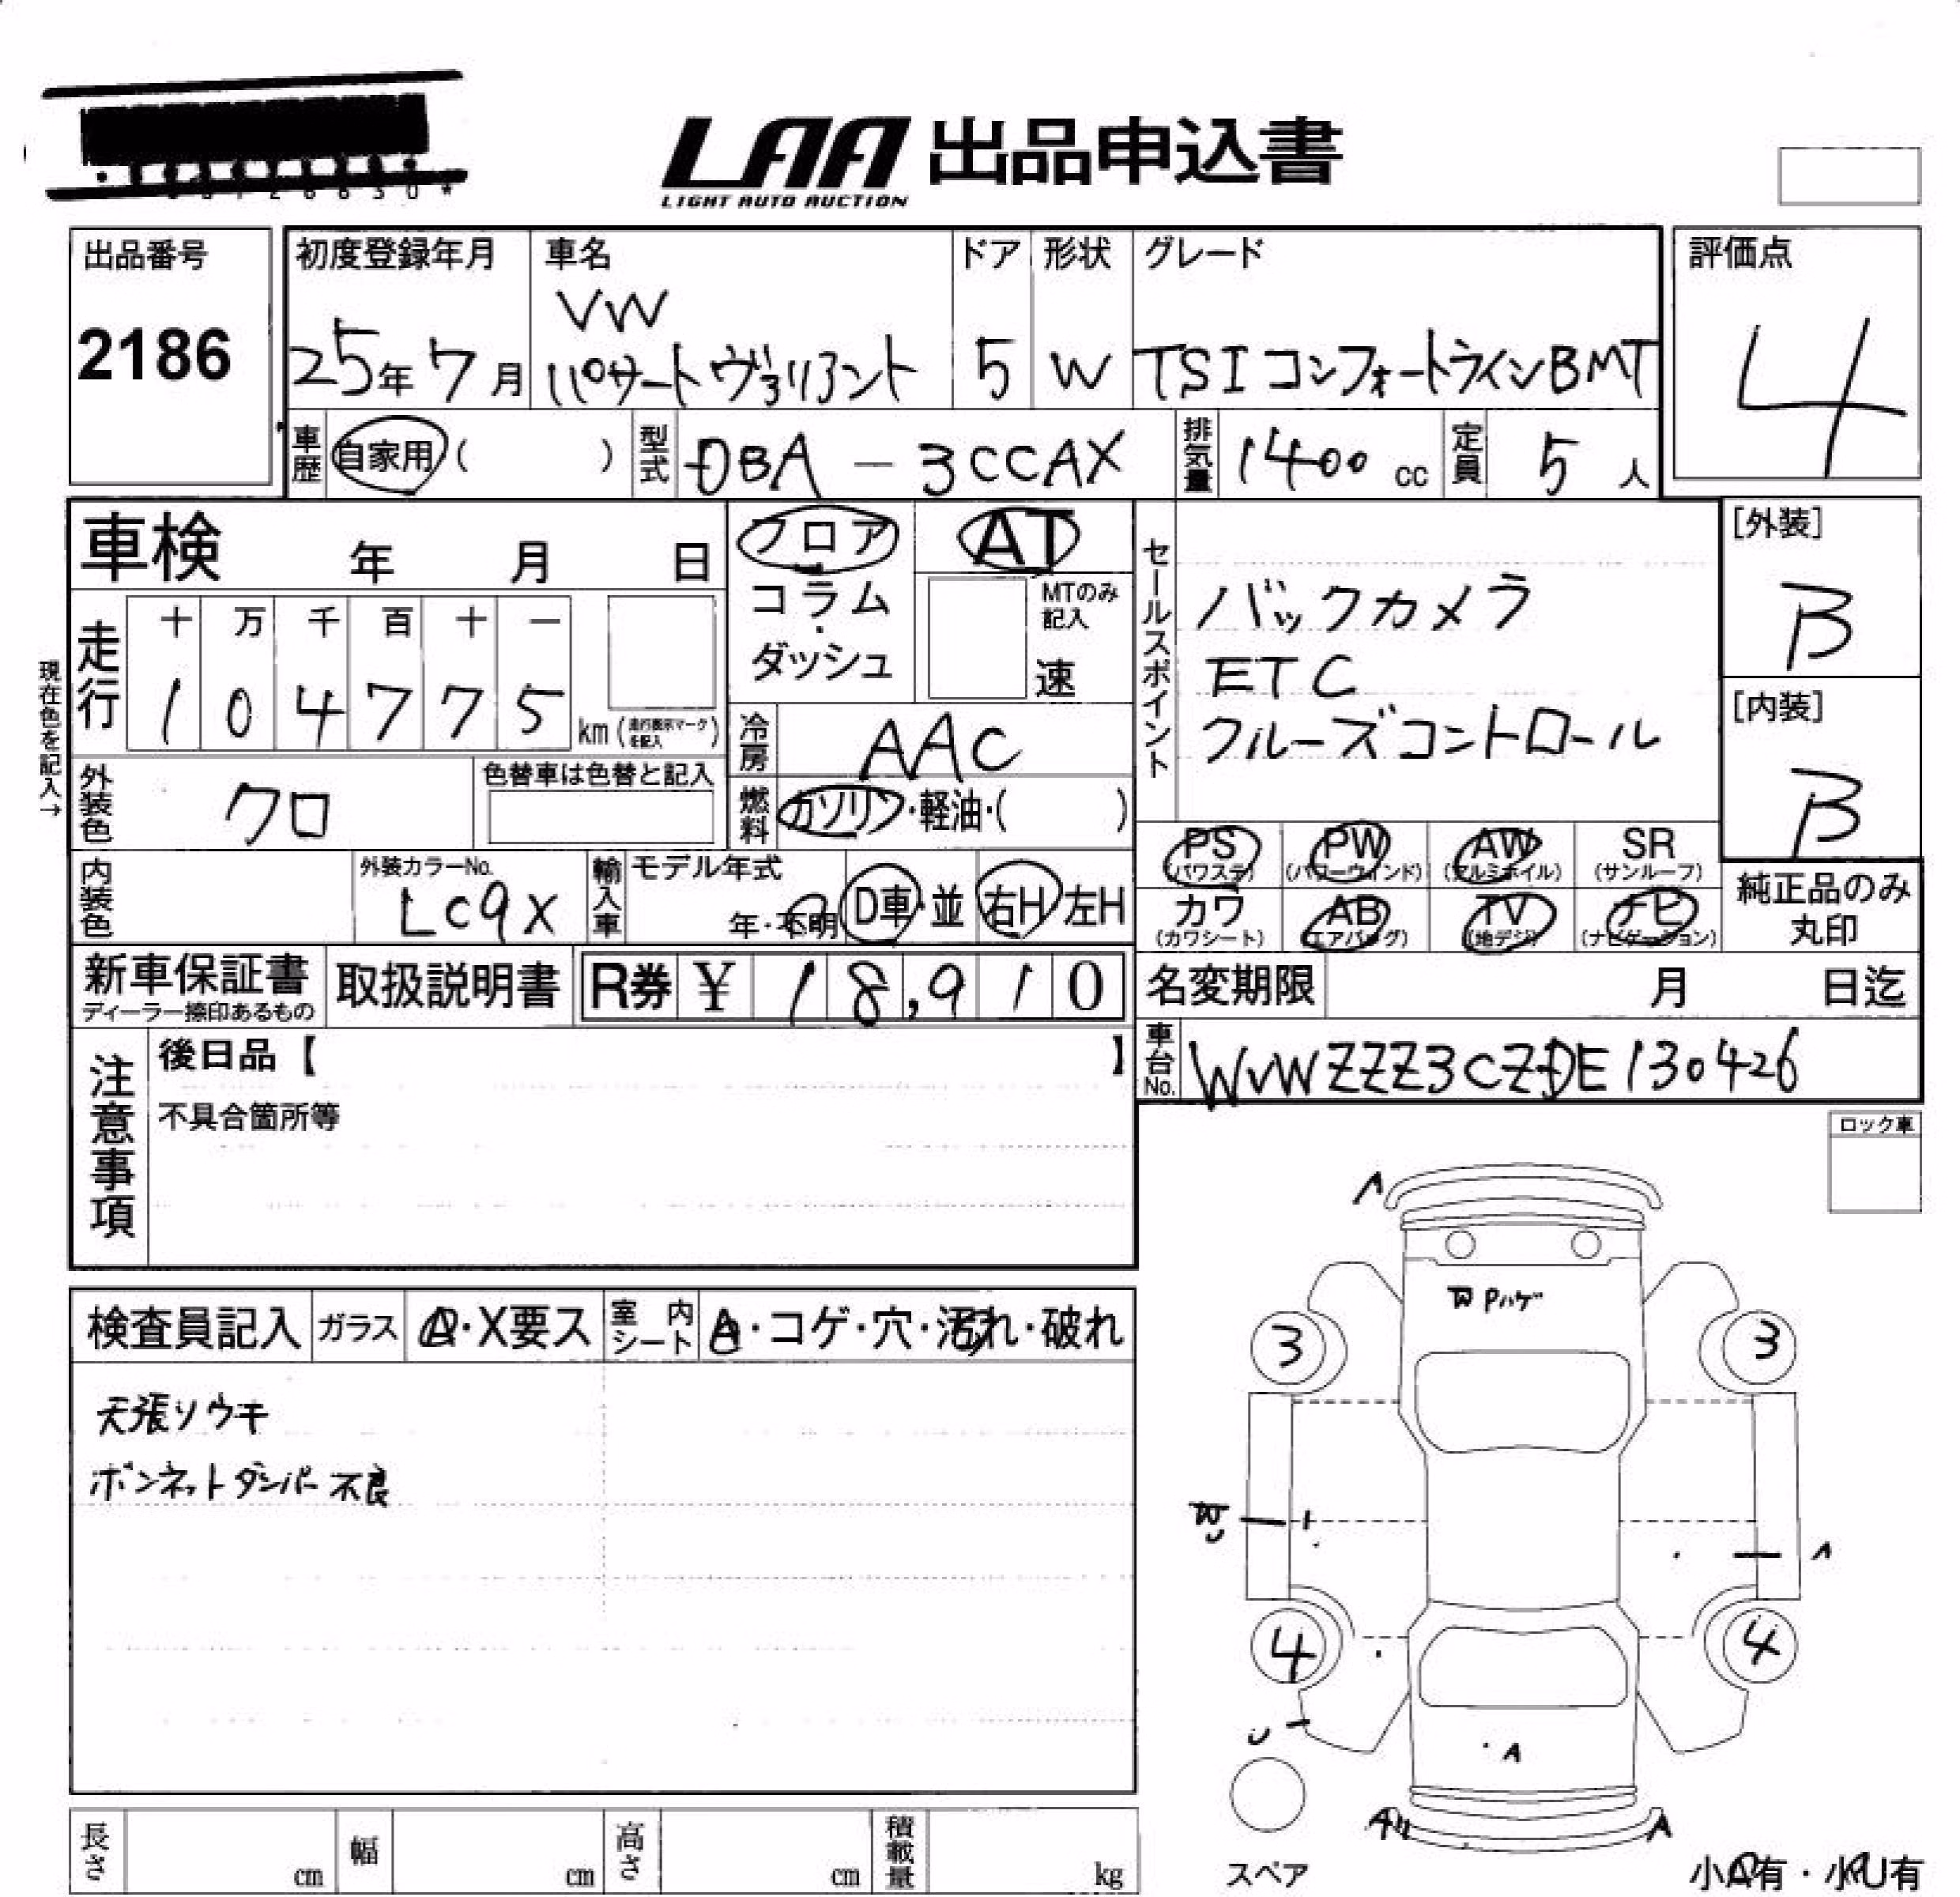 LAA 出品申込書
LIGHT AUTO AUCTION
出品番号
2186
初度登録年月
25年 7月
車名
VW
パサートヴァリアント
ドア
5
形状
W
グレード
TSI コンフォートラインBMT
評価点
4
車歴 自家用 ( )
型式 DBA - 3CCAX
排気量 1400 cc
定員 5 人
車検 年 月 日
フロア
コラム
・
ダッシュ
AT
MTのみ
記入
速
セールスポイント
バックカメラ
ETC
クルーズコントロール
[外装]
B
[内装]
B
現在色を記入→
走行
十 万 千 百 十 一
1 0 4 7 7 5
km (走行表示マークを記入)
冷房 AAC
外装色 クロ
色替車は色替と記入
燃料 ガソリン・軽油・( )
PS (パワステ)
PW (パワーウインド)
AW (アルミホイル)
SR (サンルーフ)
カワ (カワシート)
AB (エアバッグ)
TV (地デジ)
ナビ (ナビゲーション)
純正品のみ
丸印
内装色
外装カラーNo.
LC9X
輸入車
モデル年式
年・不明
D車・並
右H 左H
新車保証書
ディーラー捺印あるもの
取扱説明書
R券 ¥ 18,910
名変期限 月 日迄
車台No. WVWZZZ3CZDE130426
注意事項
後日品【 】
不具合箇所等
ロック車
検査員記入
ガラス
A・X要ス
室内シート
A・コゲ・穴・汚れ・破れ
天張ソウキ
ボンネットダンパー不良
A
W Pハゲ
3 3
W
U
A
4 4
U
A
A A
スペア
小A有・小U有
長さ cm
幅 cm
高さ cm
積載量 kg